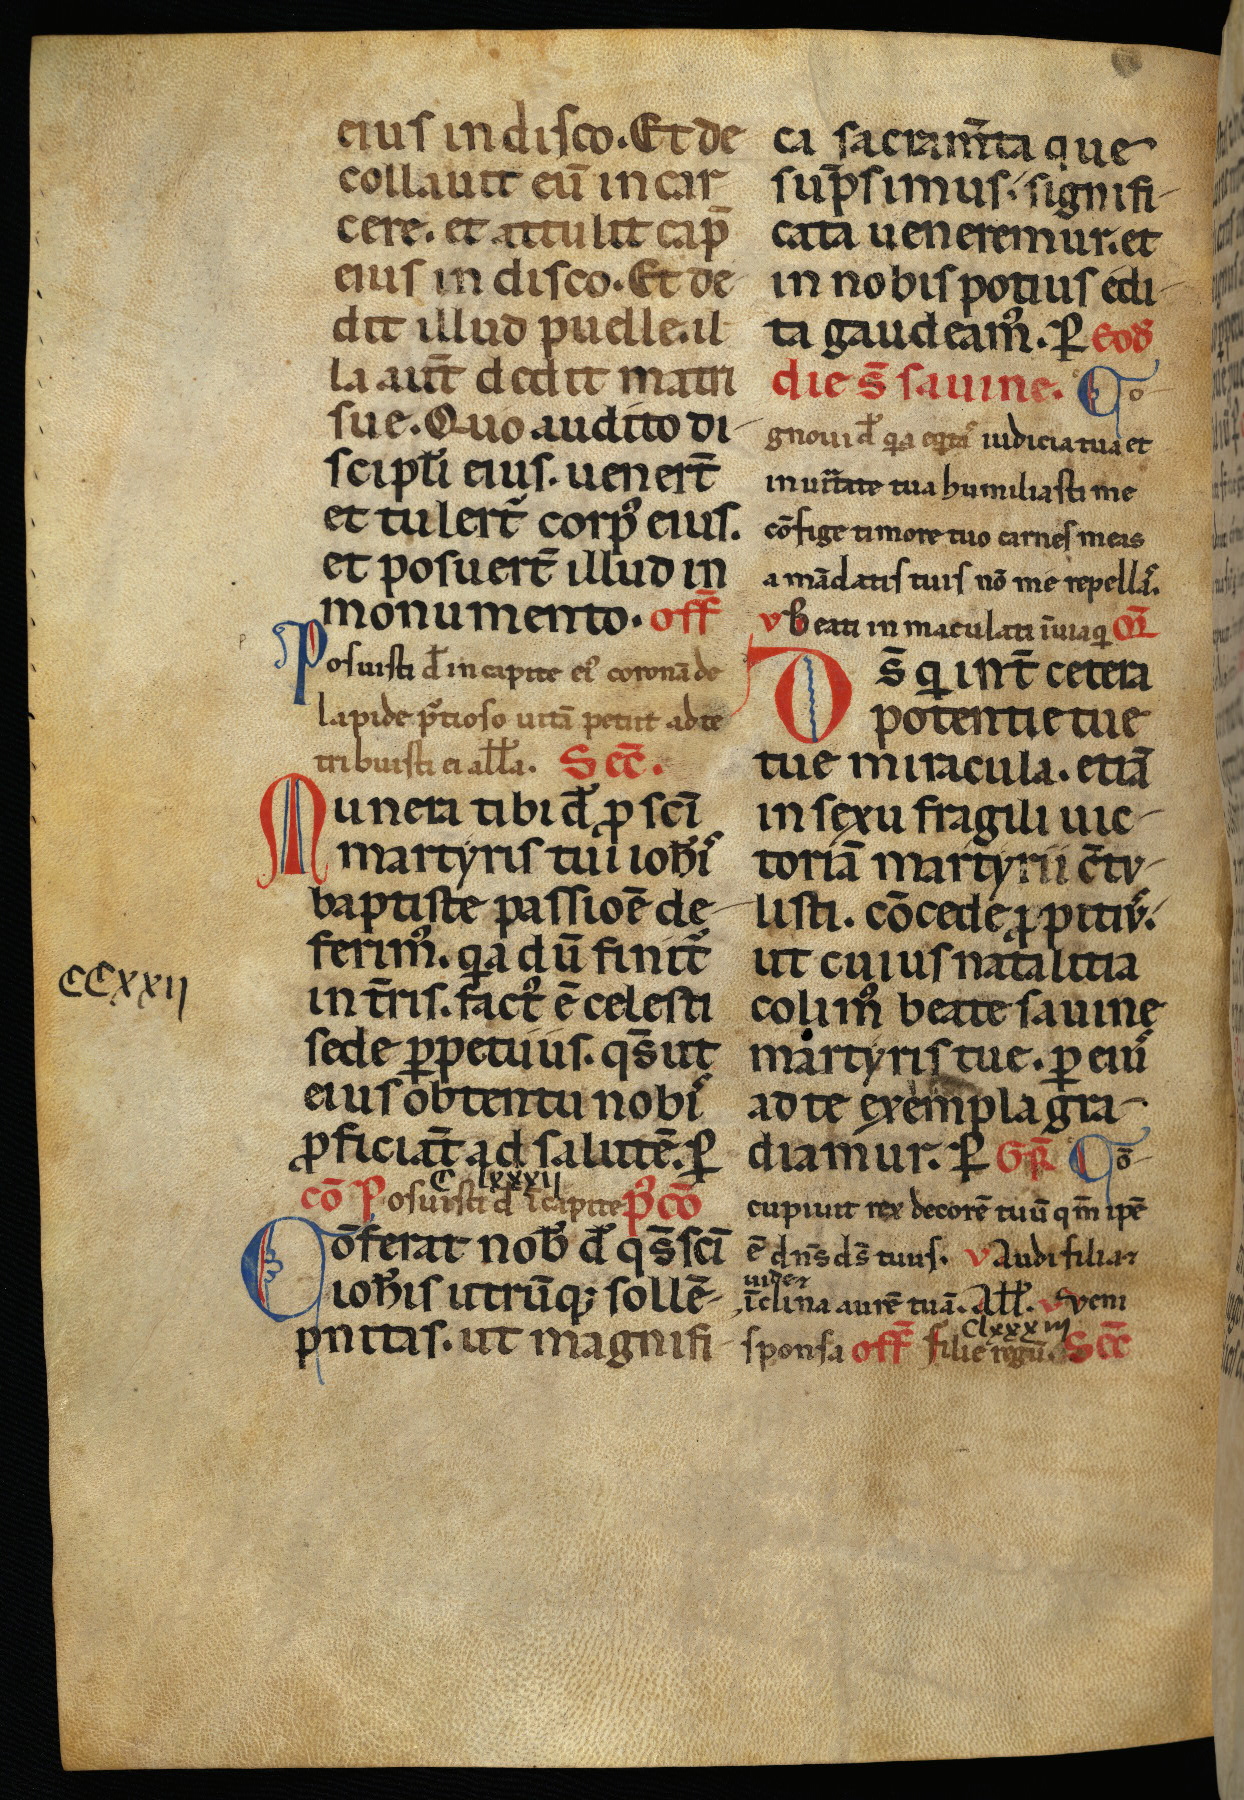 eius in disco. Et de
collauit eū in car
cere. et attulit cap̄
eius in disco. Et de
dit illud puelle. il
la aut̄ dedit matri
sue. Quo audito di
scipłi eius. uenert̄
et tulert̄ corpꝰ eius.
et posuert̄ illud in
monumento. off̄
Posuisti d̄ in capite eiꝰ coronā de
lapide p̄tioso uitā petiit ad te
tribuisti ei alła. Sec̄.
Munera tibi d̄ ꝓ sc̄i
martyris tui ioħis
baptiste passioē de
ferimꝰ. qͥa dū finit̄
in t̄ris. factꝰ ē celesti
sede ꝑpetuus. qs̄ ut
eius obtentu nobis
ꝓficiat̄ ad salutē. ꝑ
C lxxxii
cō Posuisti d̄ ī capite p̄ꝰcō
Cōferat nob̄ d̄ qs̄ sc̄i
ioħis utrūqꝫ sollē
CCxxii
pnitas. ut magnifi
ca sacram̄ta que
sūpsimus. signifi
cata ueneremur. et
in nobis potius edi
ta gaudeamꝰ. ꝑ Eod̄
die s̄ sauine. Co
gnoui d̄ qͥa eqͥtas iudicia tua et
in uīt̄ate tua humiliasti me
cōfige timore tuo carnes meas
a mādatis tuis nō me repellas.
v Beati inmaculati ī uia qͥ OR̄
Ds̄ qͥ int̄ cetera
potentie tue
tue miracula. etiā
in sexu fragili uic
toriā martyrii c̄tu
listi. cōcede ꝓpitiꝰ.
ut cuius natalitia
colimꝰ beate sauine
martyris tue. ꝑ eius
ad te exempla gra
diamur. ꝑ GR̄ Cō
cupiuit rex decorē tuū qm̄ ipē
ē dn̄s ds̄ tuus. v Audi filia ⁊
uide ⁊
īclina aurē tuā. Ałł. v veni
Clxxxiii
sponsa off̄ filie regū. Sec̄